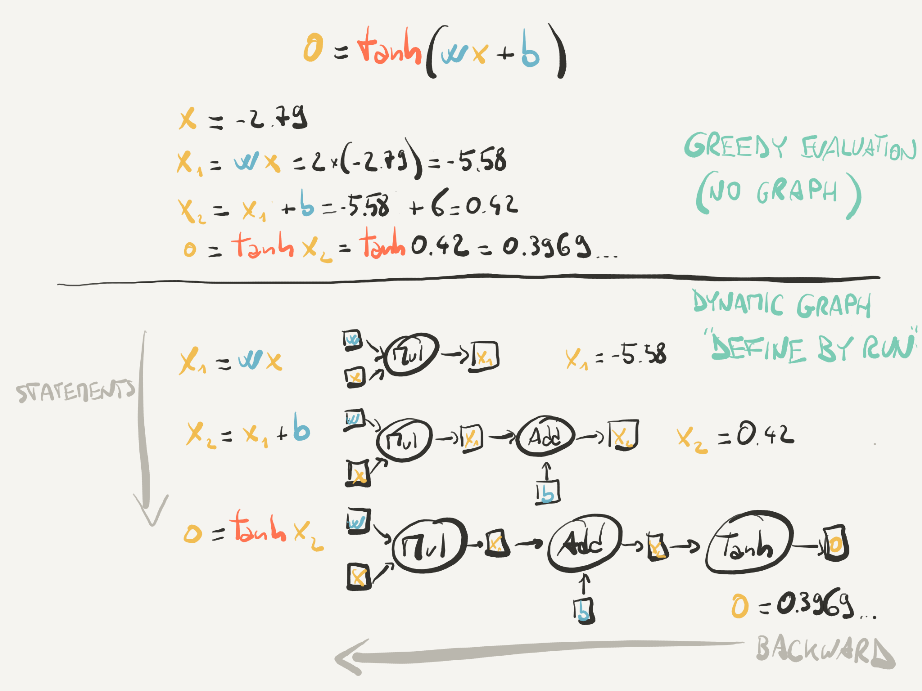 o = tanh(wx + b)
x = -2.79
x₁ = wx = 2×(-2.79) = -5.58
x₂ = x₁ + b = -5.58 + 6 = 0.42
o = tanh x₂ = tanh 0.42 = 0.3969...
GREEDY EVALUATION
(NO GRAPH)
DYNAMIC GRAPH
"DEFINE BY RUN"
STATEMENTS
x₁ = wx
w
x
Mul
x₁
x₁ = -5.58
x₂ = x₁ + b
w
x
Mul
x₁
Add
b
x₂ = 0.42
o = tanh x₂
w
x
Mul
Add
b
Tanh
o
o = 0.3969...
BACKWARD